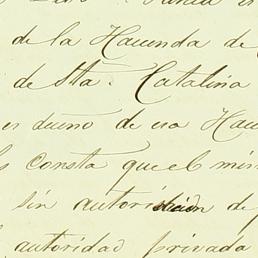 de la Hacienda de
de Sta. Catalina
es dueño de esa Hac
Consta que el mis
sin autorisacion de
autoridad privada